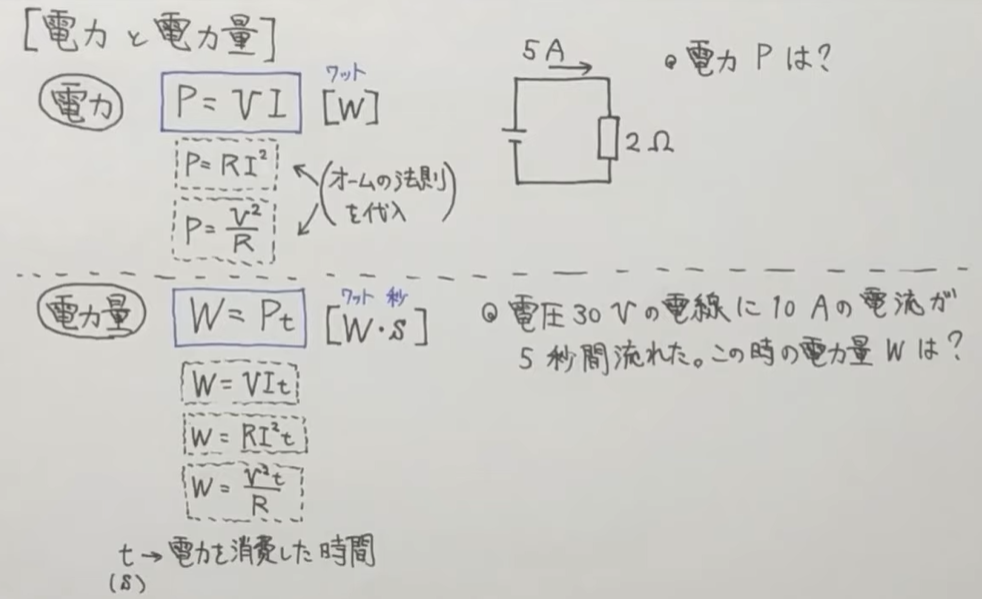 [電力と電力量]
電力
P = VI
ワット
[W]
P = RI²
P = V²/R
(オームの法則
を代入)
5A
2Ω
電力 P は?
電力量
W = Pt
ワット 秒
[W・s]
W = VIt
W = RI²t
W = V²t/R
t → 電力を消費した時間
(s)
電圧30Vの電線に10Aの電流が
5秒間流れた。この時の電力量Wは?